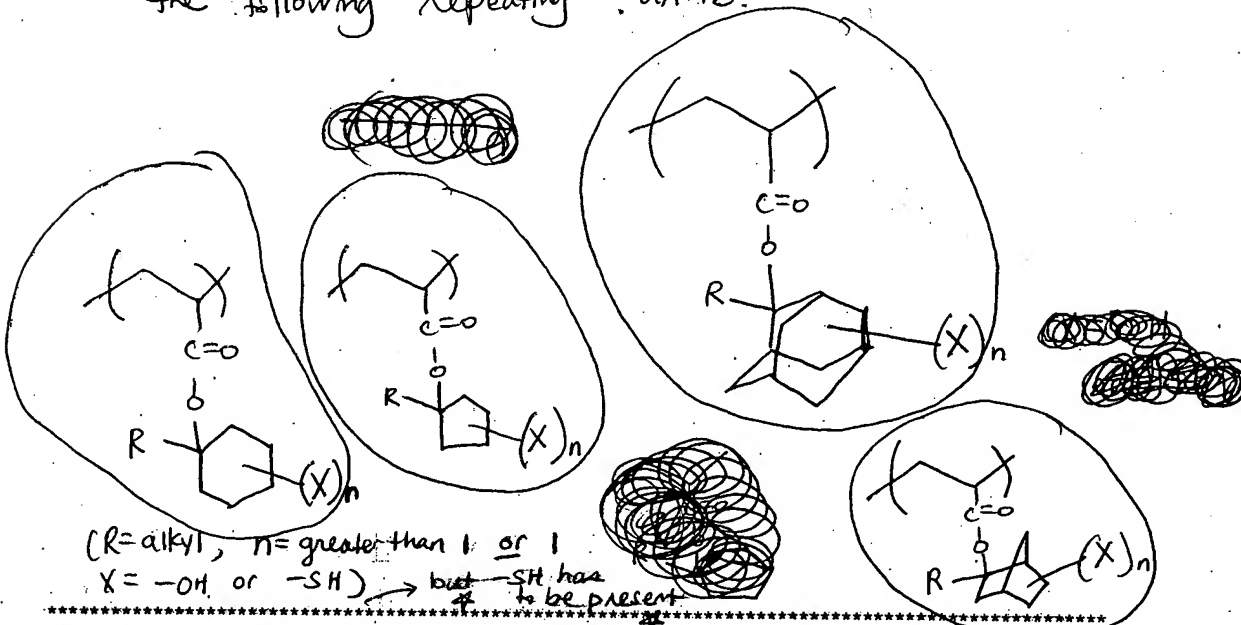 the following repeating units.
C=O
O
R
(X)n
C=O
O
R
(X)n
C=O
O
R
(X)n
C=O
O
R
(X)n
(R=alkyl, n= greater than 1 or 1
X= -OH or -SH) → but -SH has
to be present